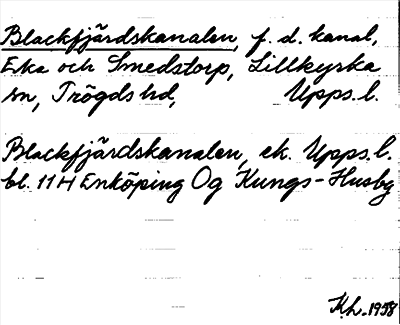 Blackfjärdskanalen, f. d. kanal,
Eka och Smedstorp, Lillkyrka
sn, Trögds hd, Upps. l.
Blackfjärdskanalen, ek. Upps. l.
bl. 11 H Enköping Og Kungs-Husby
Kh. 1958